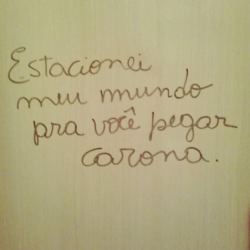 Estacionei
meu mundo
pra você pegar
carona.